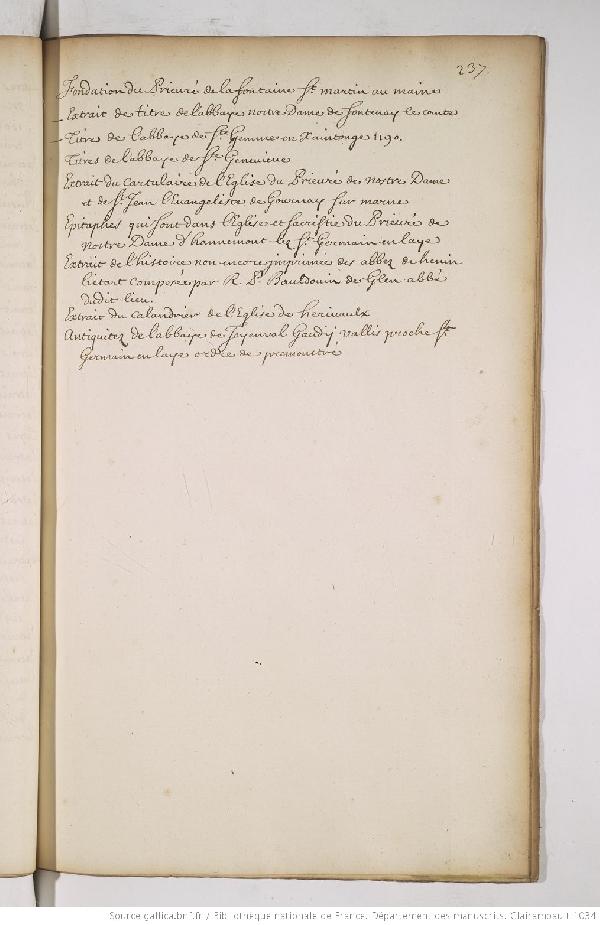 237.
Fondation du Prieuré de la fontaine St martin au maine
Extrait de titre de l'abbaye nostre Dame de fontenay le conte
Titre de l'abbaye de Ste Gemme en Xaintonge 1190.
Titres de l'abbaye de Ste Genevieve
Extrait du Cartulaire de l'Eglise du Prieuré de nostre Dame
et de St Jean l'Euangeliste de Gournay sur marne
Epitaphes qui sont dans l'Eglise et sacristie du Prieuré de
nostre Dame d'hannemont lez St Germain en laye
Extrait de l'histoire non encore imprimée des abbez de henin
lietart composée par R. P. Bauldouin de Glen abbé
dudit lieu.
Extrait du Calandrier de l'Eglise de herivaulx
Antiquitez de l'abbaye de Joyenval Gaudij vallis proche St
Germain en laye ordre de premonstré
Source gallica.bnf.fr / Bibliothèque nationale de France. Département des manuscrits. Clairambault 1034